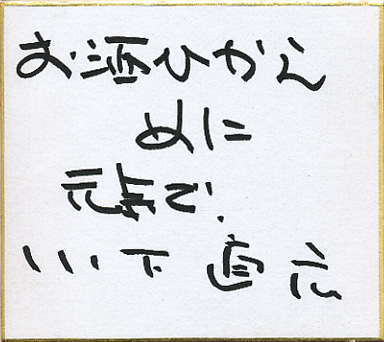 お酒ひかえ
めに
元気で.
川下直広